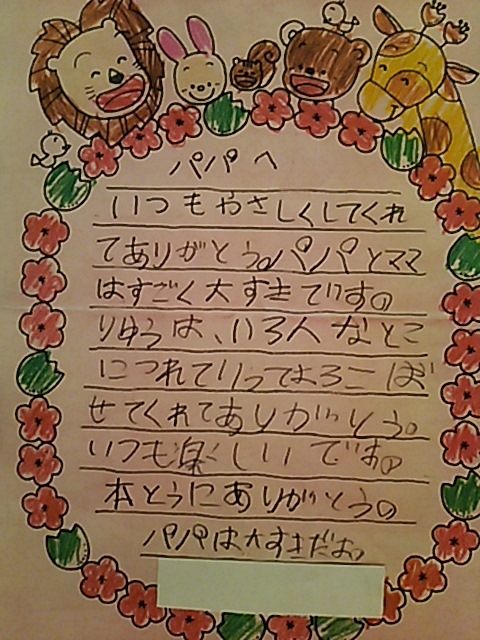 パパへ
いつもやさしくしてくれ
てありがとう。パパとママ
はすごく大すきです。
りゆうは、いろ人なとこ
につれていってよろこば
せてくれてありがとう。
いつも楽しいです。
本とうにありがとう。
パパは大すきだよ。